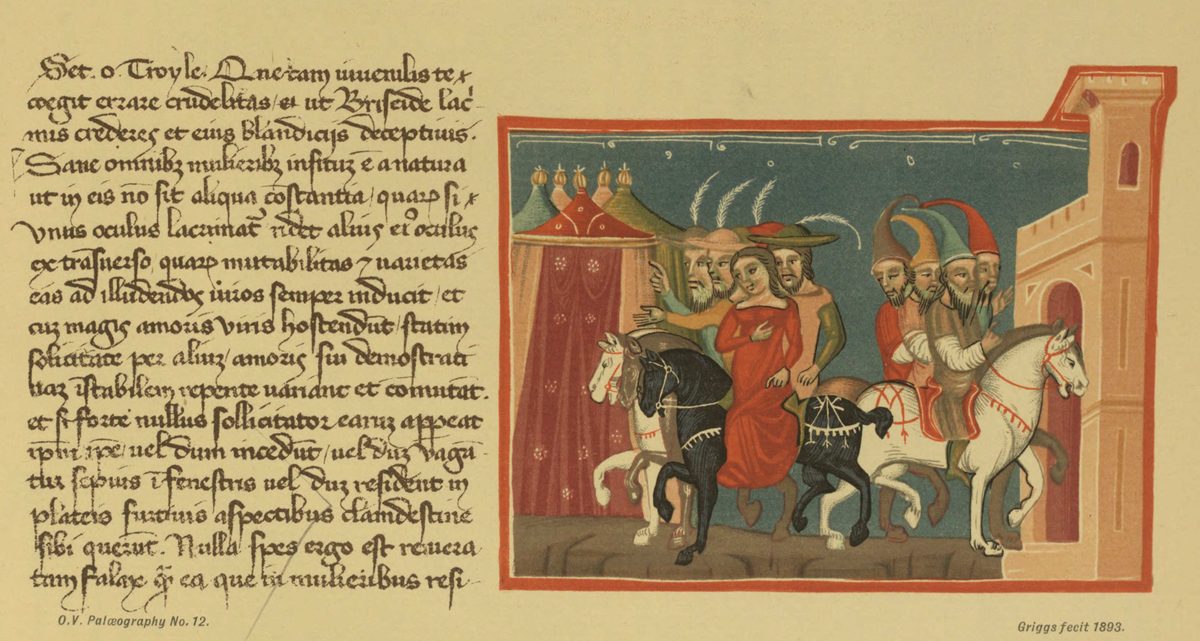 Set. o. Troyle. Que tam iuuenilis te
coegit errare crudelitas, et ut Briseide lac̄-
mis crederes et eius blandicijs deceptiuis.
Sane omnibꝫ mulieribꝫ insituꝫ ē a natura
ut in eis nō sit aliqua cōstantia, quaꝝ si
vnus oculus lacrimat᷑ ridet alius eiꝰ oculus
ex trāsuerso, quaꝝ mutabilitas ⁊ uarietas
eas ad illudendos uiros semper inducit, et
cuꝫ magis amoris viris hostendūt, statim
solicitate per aliuꝫ, amoris sui demostrati
uaꝫ īstabilem repente uariant et comutāt.
et si forte nullus sollicitator earuꝫ appeat
ipm̄ ip̄e, uel dum incedūt, uel duꝫ vagā-
tuꝫ sepius ī fenestris uel duꝫ resident in
plateis furtiuis aspectibus clamdestine
sibi querūt. Nulla spes ergo est reuera
tam falax qͣ̄ ea que in mulieribus resi-
O.V. Palæography No. 12.
Griggs fecit 1893.